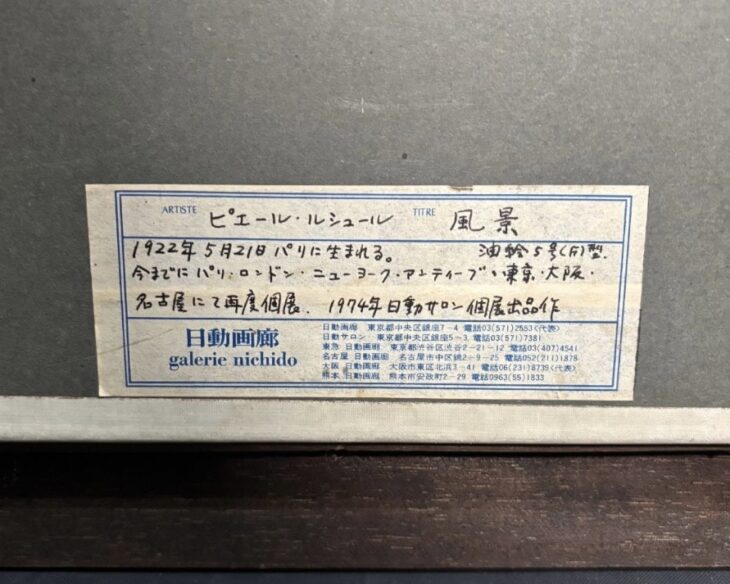 ARTISTE ピエール・ルシュール TITRE 風景
1922年5月21日パリに生まれる。 油絵5号(F)型
今までにパリ・ロンドン・ニューヨーク・アンティーブ・東京・大阪・
名古屋にて再度個展. 1974年日動サロン個展出品作
日動画廊
galerie nichido
日動画廊 東京都中央区銀座7-4 電話03(571)2553(代表)
日動サロン 東京都中央区銀座5-3 電話03(571)7381
東急 日動画廊 東京都渋谷区渋谷2-21-12 電話03(407)4541
名古屋 日動画廊 名古屋市中区錦2-9-25 電話052(211)1878
大阪 日動画廊 大阪市東区北浜3-41 電話06(231)8739(代表)
熊本 日動画廊 熊本市安政町2-29 電話0963(55)1833